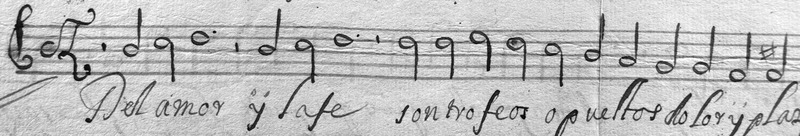 Del amor ÿ la fe son trofeos opuestos dolor ÿ plaz